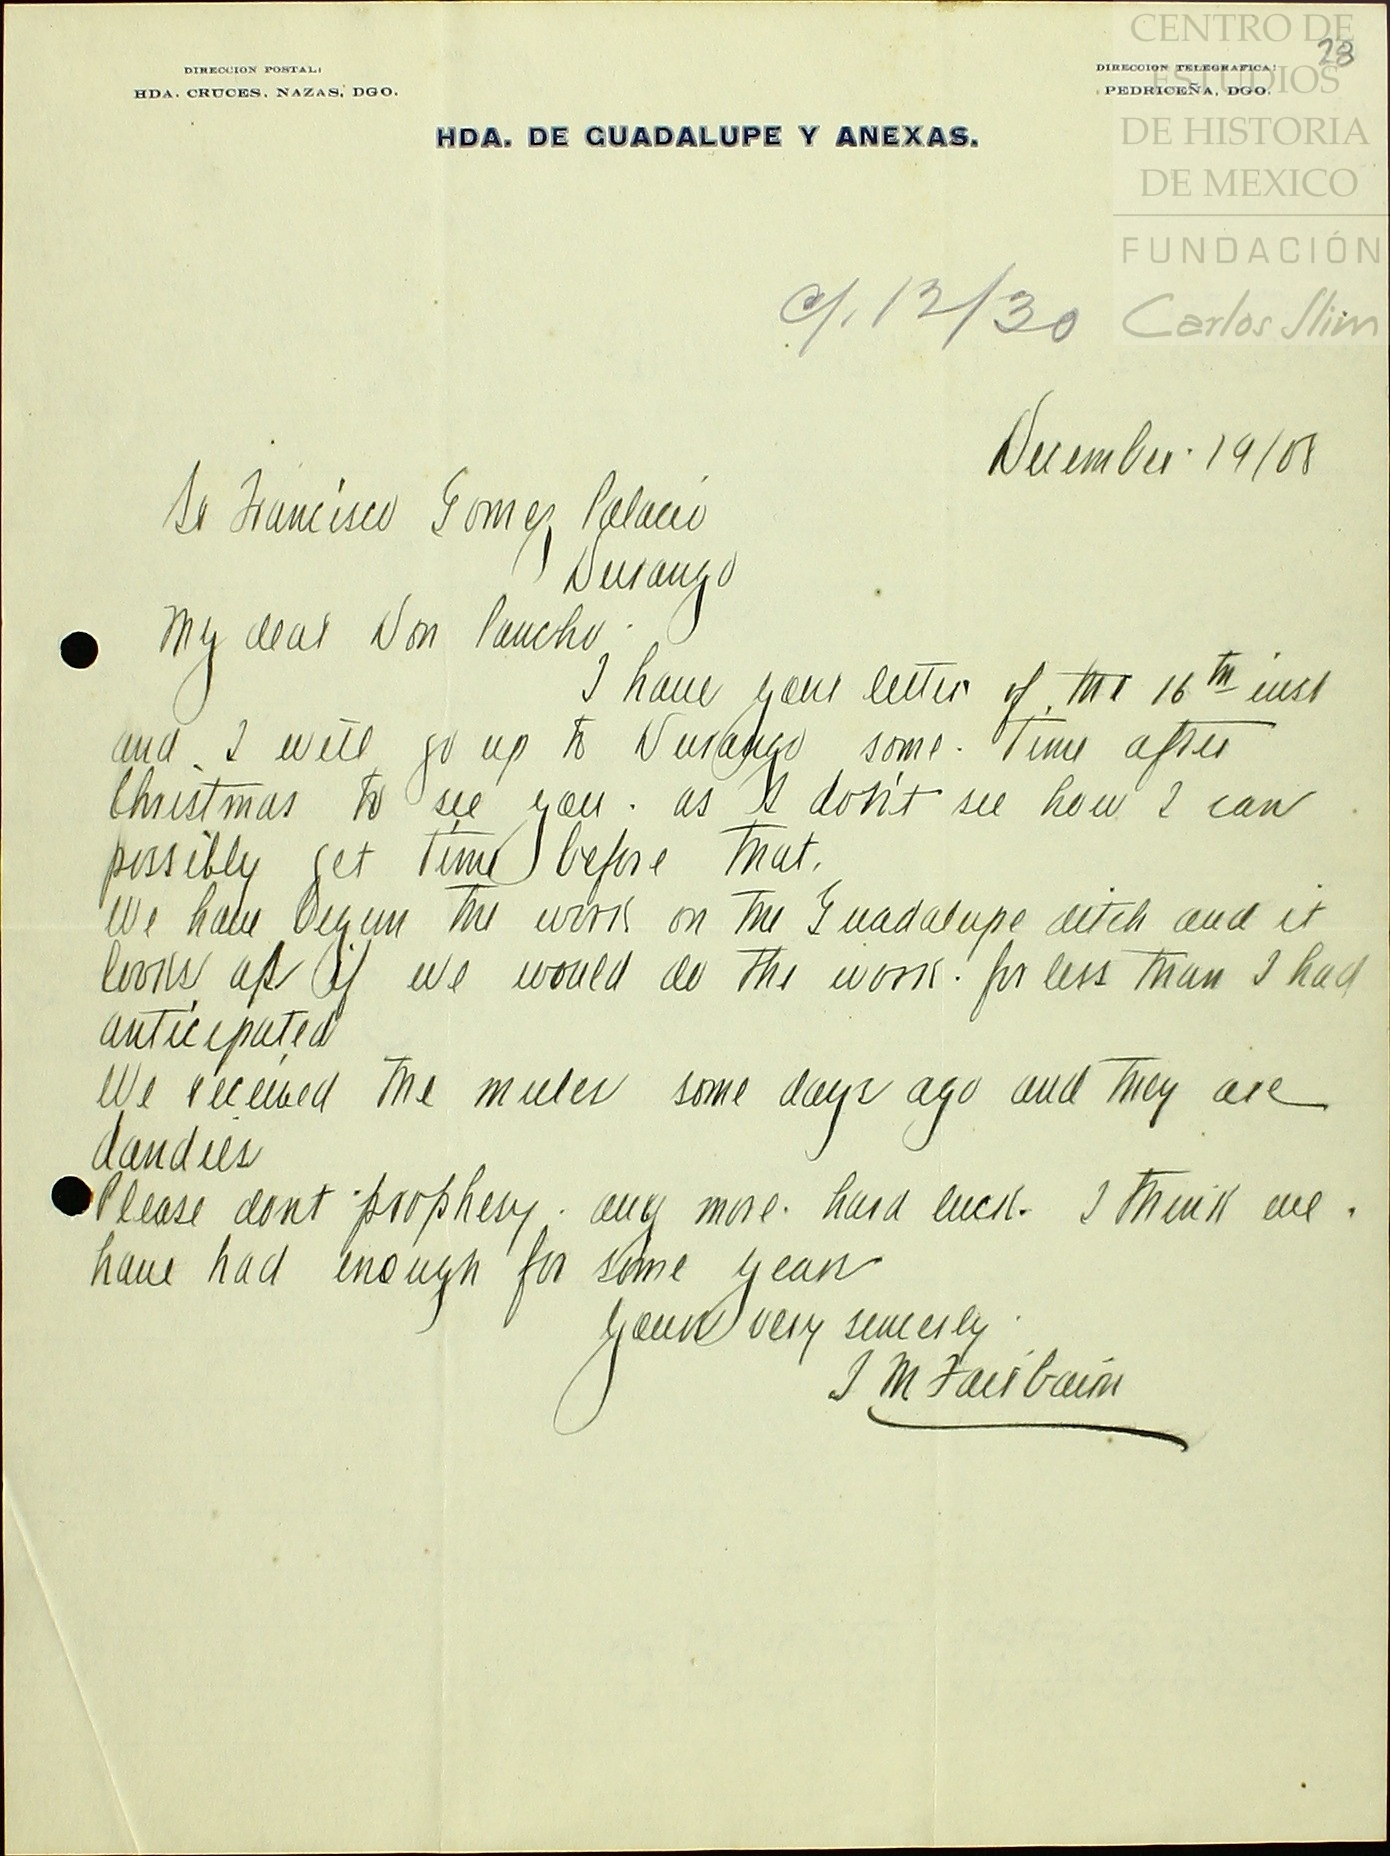 CENTRO DE
ESTUDIOS
DE HISTORIA
DE MEXICO
FUNDACIÓN
Carlos Slim
28
DIRECCION POSTAL:
HDA. CRUCES, NAZAS, DGO.
DIRECCION TELEGRAFICA:
PEDRICEÑA, DGO.
HDA. DE GUADALUPE Y ANEXAS.
c/. 12/30
December 19/08
Sr Francisco Gomez Palacio
Durango
My dear Don Pancho
I have your letter of the 16th inst
and I will go up to Durango some time after
Christmas to see you. as I don't see how I can
possibly get time before that.
We have begun the work on the Guadalupe ditch and it
looks as if we would do the work for less than I had
anticipated
We received the mules some days ago and they are
dandies
Please dont prophesy any more hard luck. I think we
have had enough for some years
Yours very sincerly
M Fairbairn